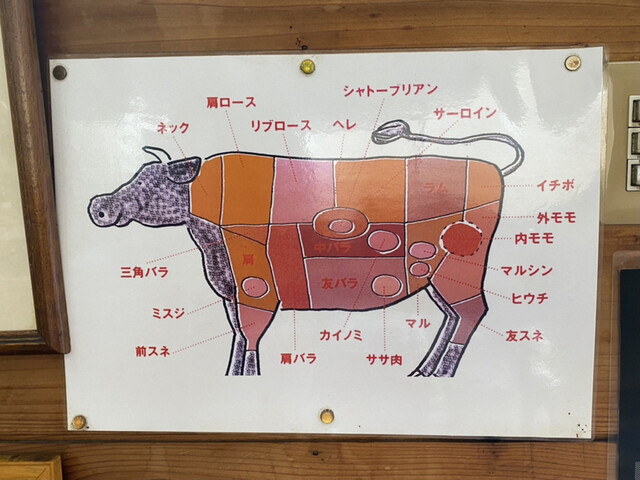 シャトーブリアン
肩ロース
サーロイン
ネック
リブロース
ヘレ
ラム
イチボ
外モモ
内モモ
中バラ
肩
三角バラ
マルシン
友バラ
ヒウチ
ミスジ
マル
カイノミ
友スネ
前スネ
肩バラ
ササ肉